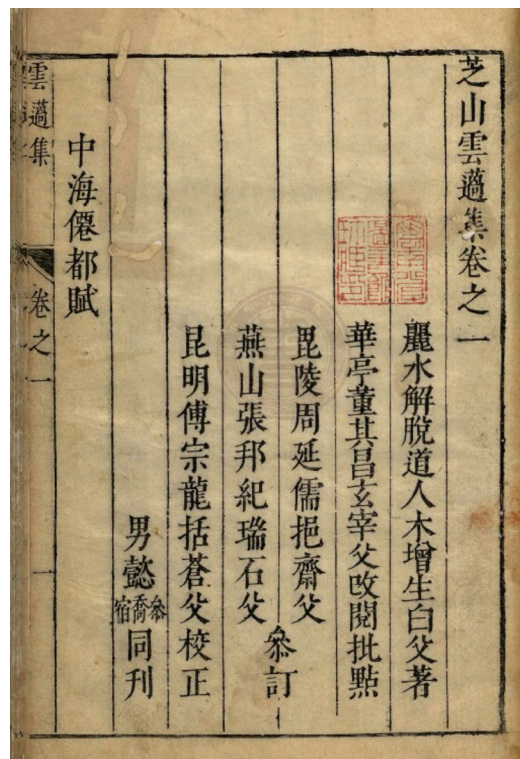 芝山雲薖集卷之一
麗水解脫道人木增生白父著
華亭董其昌玄宰父攺閱批點
毘陵周延儒挹齋父
燕山張邦紀瑞石父
叅訂
昆明傅宗龍括蒼父校正
男懿
叅喬宿
同刊
中海僊都賦
雲薖集
卷之一
一